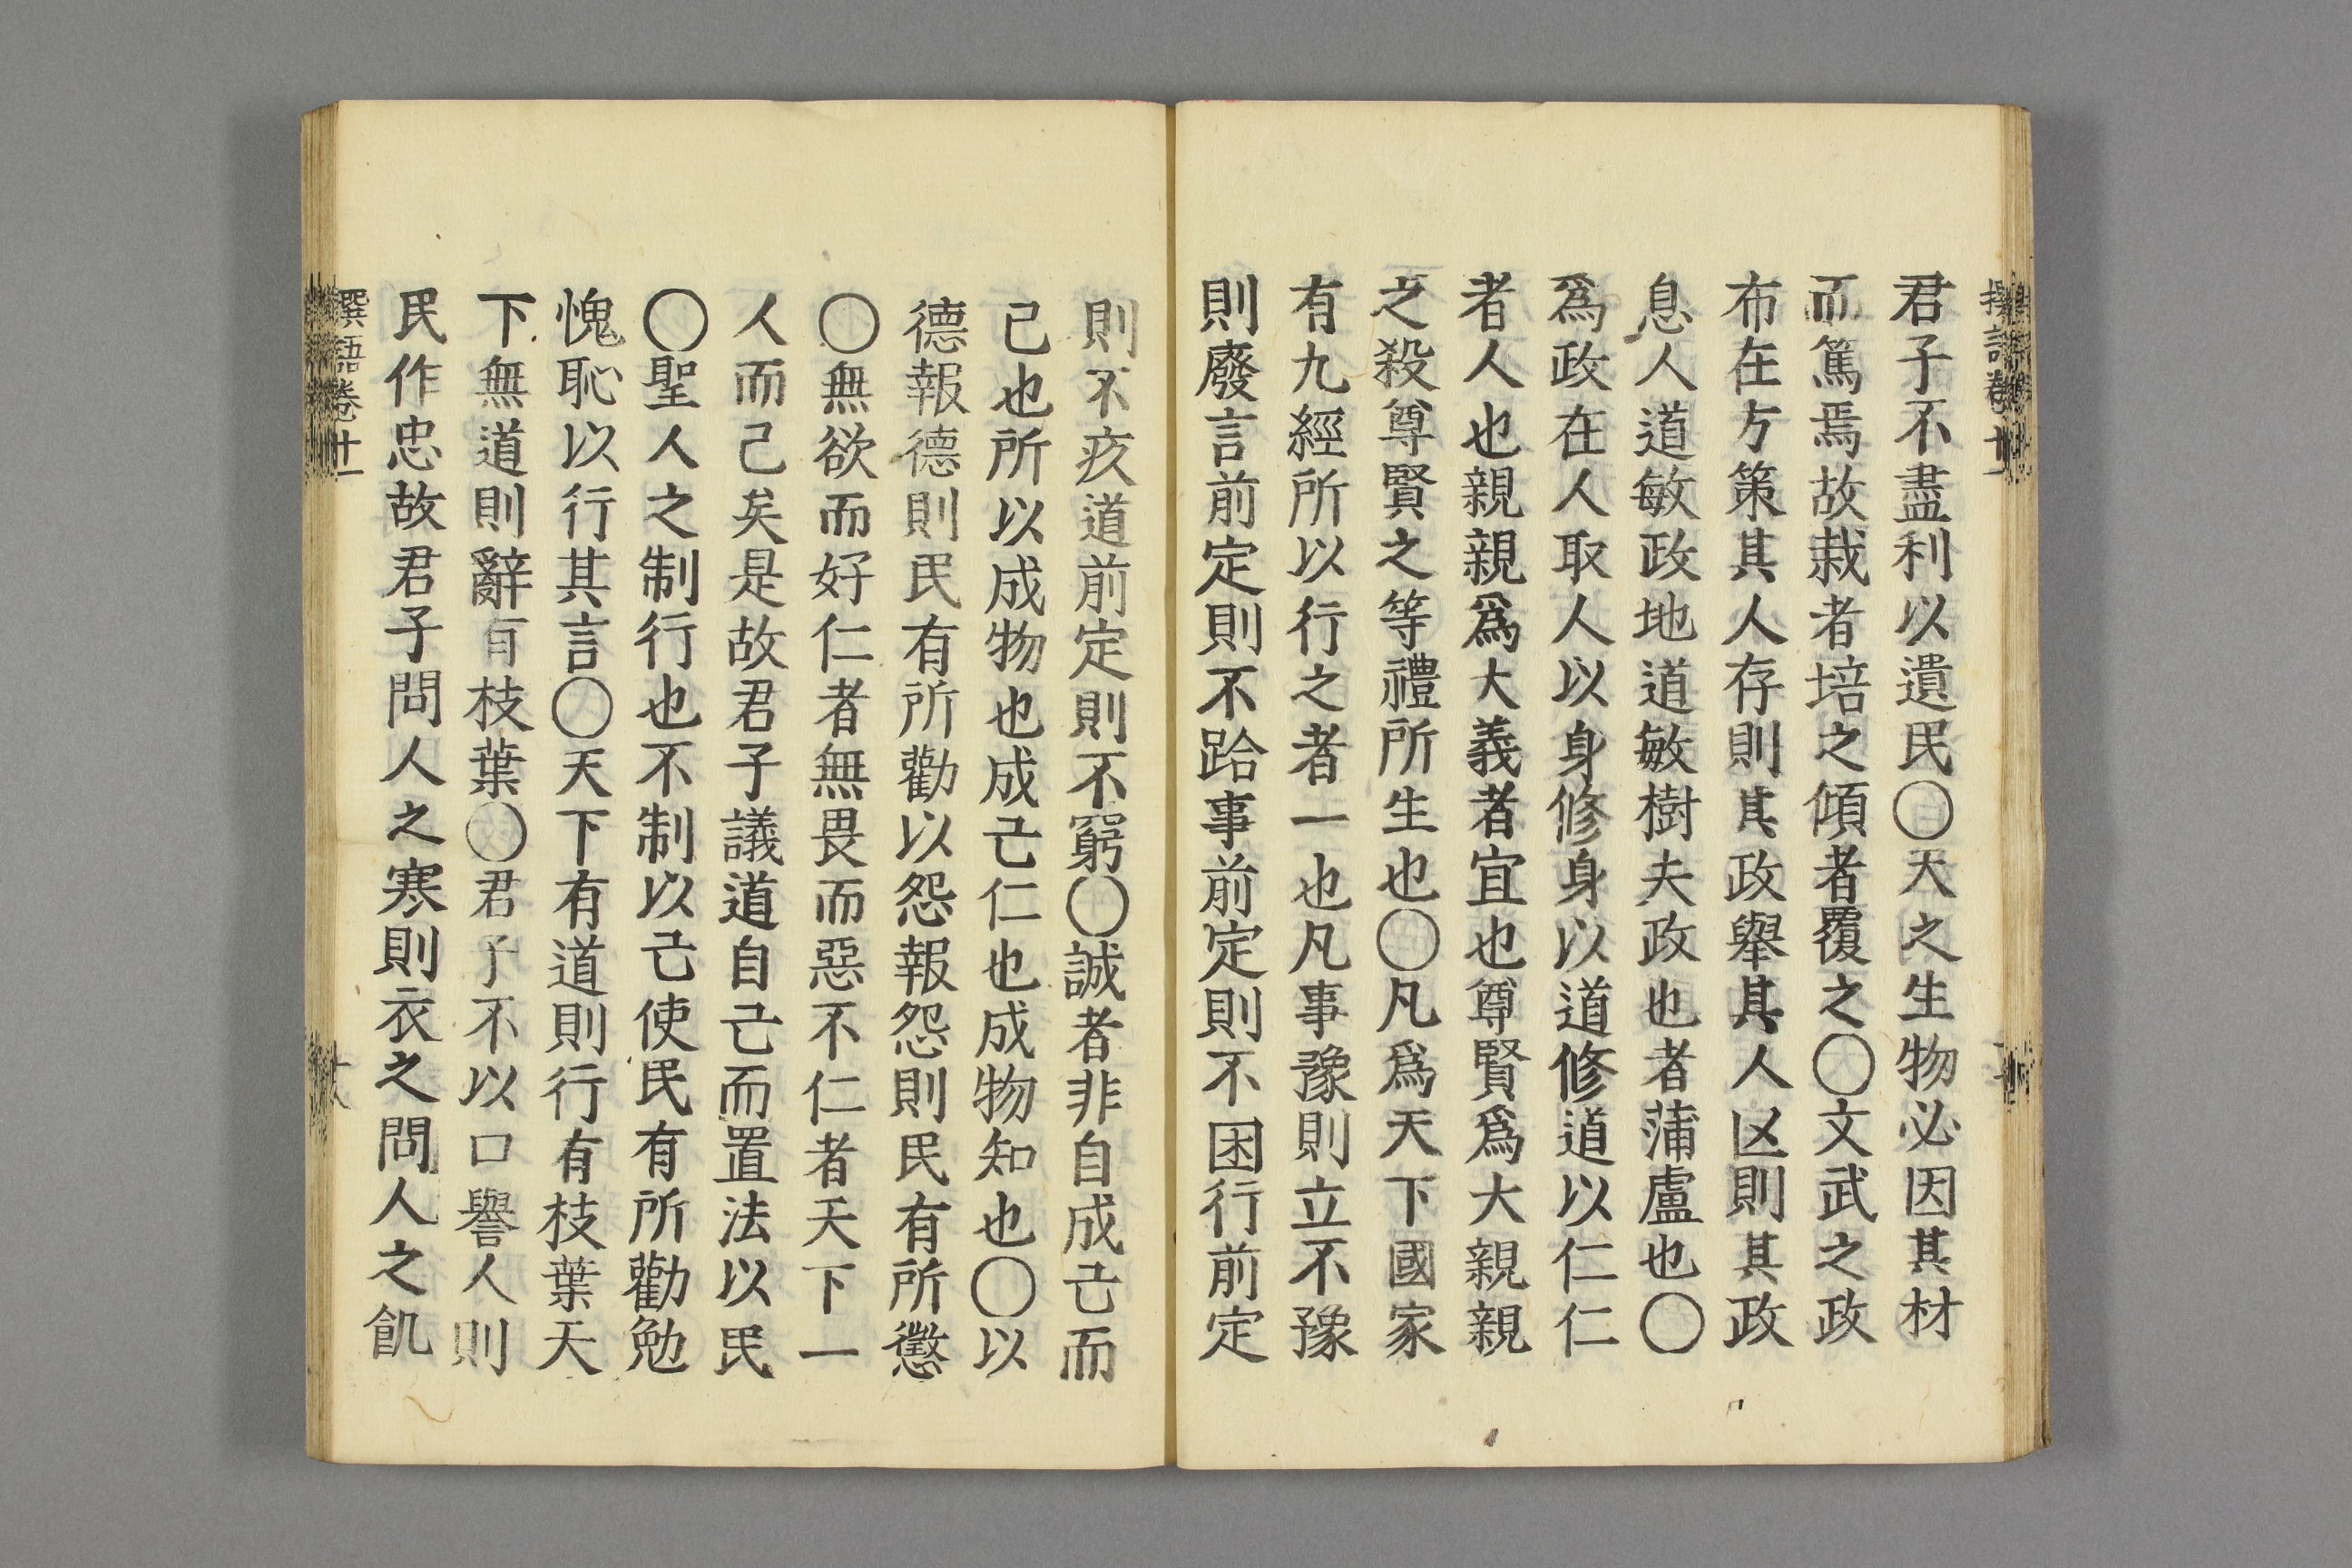 君子不盡利以遺民〇天之生物必因其材
而篤焉故栽者培之傾者覆之〇文武之政
布在方策其人存則其政舉其人亾則其政
息人道敏政地道敏樹夫政也者蒲盧也〇
爲政在人取人以身修身以道修道以仁仁
者人也親親爲大義者宜也尊賢爲大親親
之殺尊賢之等禮所生也〇凡爲天下國家
有九經所以行之者一也凡事豫則立不豫
則廢言前定則不跲事前定則不困行前定
則不疚道前定則不窮〇誠者非自成己而
己也所以成物也成己仁也成物知也〇以
德報德則民有所勸以怨報怨則民有所懲
〇無欲而好仁者無畏而惡不仁者天下一
人而己矣是故君子議道自己而置法以民
〇聖人之制行也不制以己使民有所勸勉
愧恥以行其言〇天下有道則行有枝葉天
下無道則辭有枝葉〇君子不以口譽人則
民作忠故君子問人之寒則衣之問人之飢
撰語卷十一